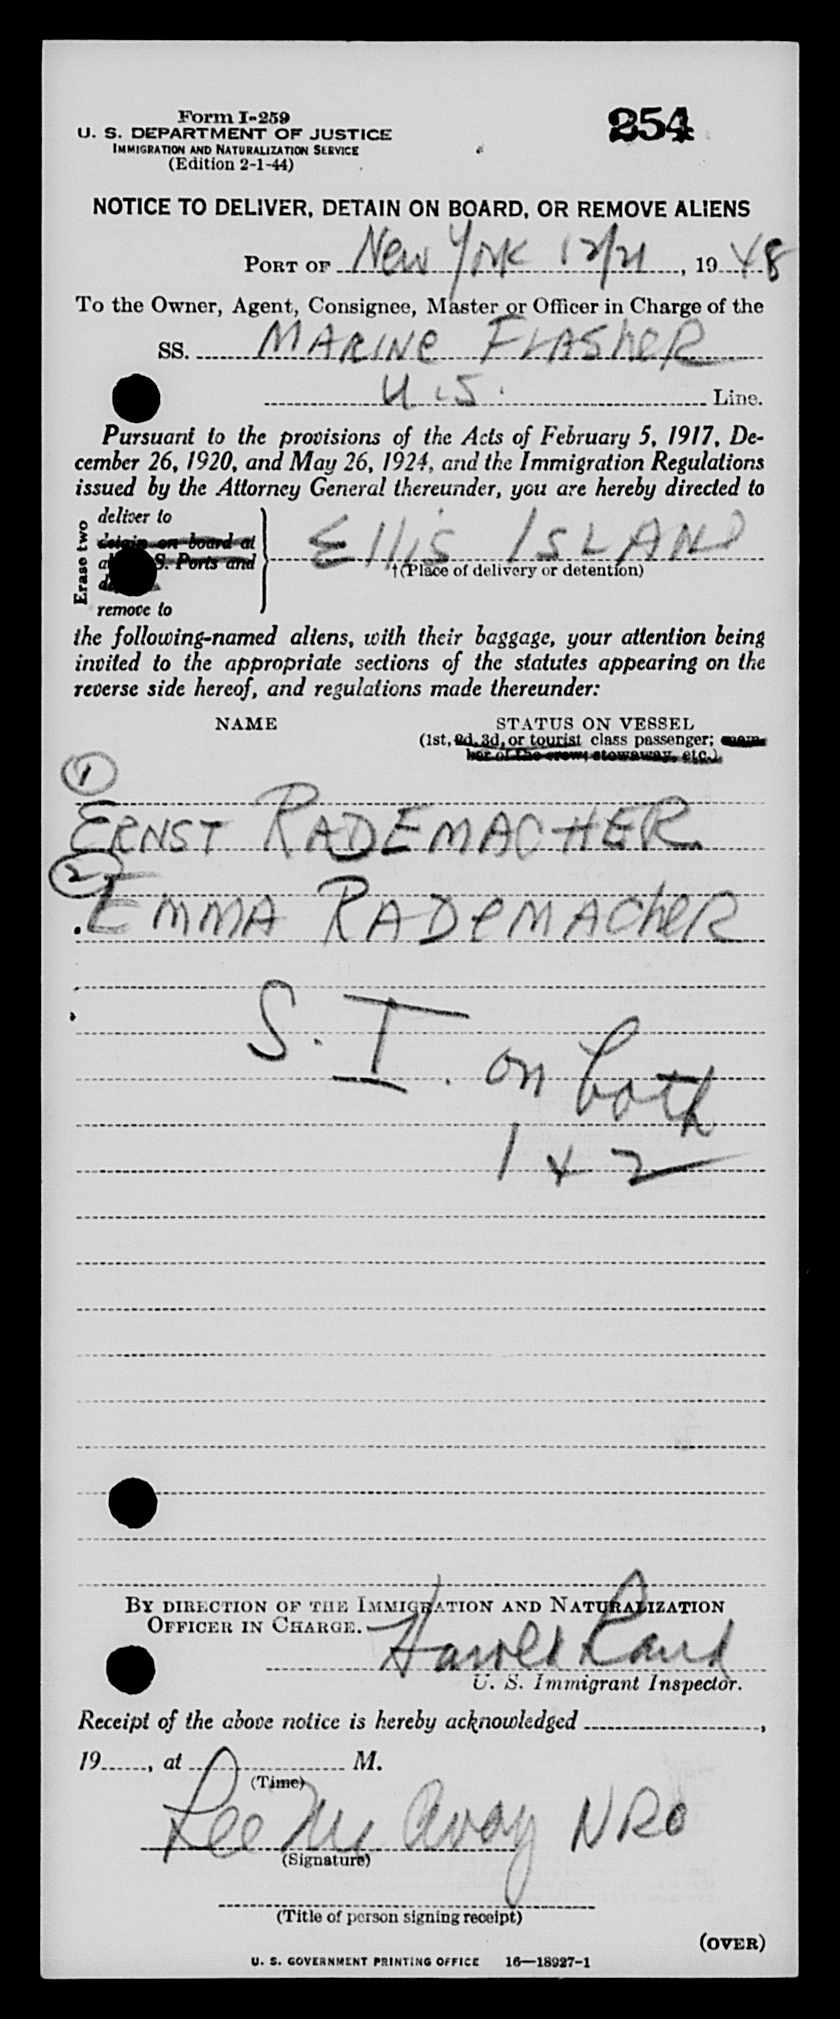 Form I-259
254
U. S. DEPARTMENT OF JUSTICE
IMMIGRATION AND NATURALIZATION SERVICE
(Edition 2-1-44)
NOTICE TO DELIVER, DETAIN ON BOARD, OR REMOVE ALIENS
PORT OF New York 12/21, 1948
To the Owner, Agent, Consignee, Master or Officer in Charge of the
SS. MARINE FLASHER
U.S. Line.
Pursuant to the provisions of the Acts of February 5, 1917, De-
cember 26, 1920, and May 26, 1924, and the Immigration Regulations
issued by the Attorney General thereunder, you are hereby directed to
Erase two
deliver to
detain on board at
S. Ports and
remove to
Ellis ISLAND
†(Place of delivery or detention)
the following-named aliens, with their baggage, your attention being
invited to the appropriate sections of the statutes appearing on the
reverse side hereof, and regulations made thereunder:
NAME STATUS ON VESSEL
(1st, 2d, 3d, or tourist class passenger; mem-
ber of the crew; stowaway, etc.)
1
ERNST RADEMACHER
2
EMMA RADEMACHER
S. I. on both
1 & 2
BY DIRECTION OF THE IMMIGRATION AND NATURALIZATION
OFFICER IN CHARGE.
Harold Rand
U. S. Immigrant Inspector.
Receipt of the above notice is hereby acknowledged ,
19 , at M.
(Time)
Lee NRO
(Signature)
(Title of person signing receipt)
(OVER)
U. S. GOVERNMENT PRINTING OFFICE 16—18927-1